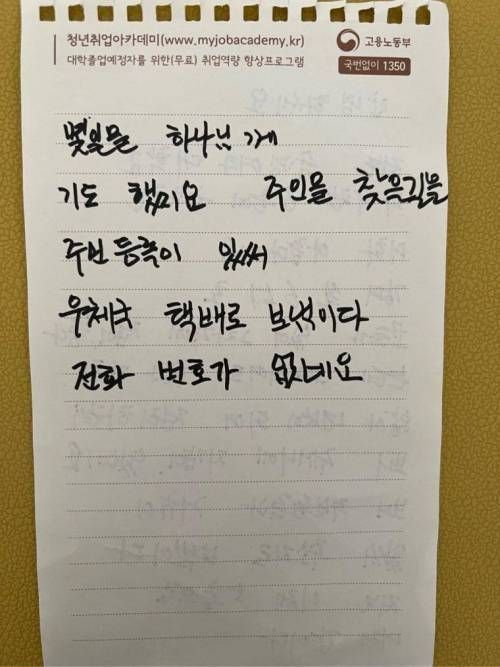 청년취업아카데미(www.myjobacademy.kr)
대학졸업예정자를 위한(무료) 취업역량 향상프로그램
고용노동부
국번없이 1350
몇일몰 하나님 게
기도 했미요 주인몰 찾을길몰
주번 등록이 있써
우체국 택배로 보냄이다
전화 번호가 없네요